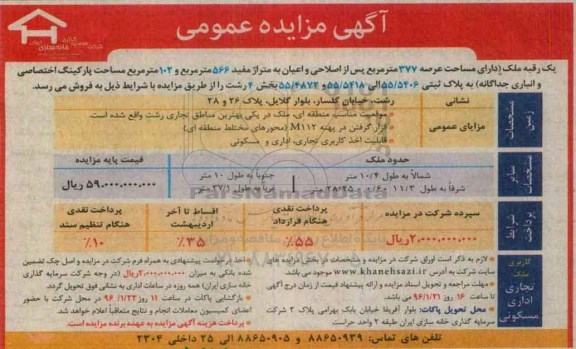 آگهی مزایده عمومی
یک رقبه ملک (دارای مساحت عرصه ۳۷۷ مترمربع پس از اصلاحی و اعیان به متراژ مفید ۵۶۶ مترمربع و ۱۰۲ مترمربع مساحت پارکینگ اختصاصی
و انباری جداگانه) به پلاک ثبتی ۵۵/۵۴۰۶ الی ۵۵/۵۴۱۸ و ۵۵/۴۸۷۲ بخش ۴ رشت را از طریق مزایده با شرایط ذیل به فروش می رسد.
مشخصات زمین
نشانی
رشت، خیابان گلسار، بلوار گلایل، پلاک ۲۶ و ۲۸
مزایای عمومی
• موقعیت مناسب منطقه ای، ملک در یکی بهترین مناطق تجاری رشت واقع شده است.
• قرار گرفتن در پهنه M112 (محورهای مختلط منطقه ای)
• قابلیت اخذ کاربری تجاری، اداری و مسکونی
سایر مشخصات
حدود ملک
قیمت پایه مزایده
شمالاً به طول ۱۰/۴ متر
جنوباً به طول ۱۰ متر
شرقاً به طول ۱۱/۳
غرباً به طول ۳۷/۱ متر
۵۹.۰۰۰.۰۰۰.۰۰۰ ریال
ParsNamadData
شرایط پرداخت
سپرده شرکت در مزایده
پرداخت نقدی هنگام قرارداد
اقساط تا آخر اردیبهشت
پرداخت نقدی هنگام تنظیم سند
۲.۰۰۰.۰۰۰.۰۰۰ ریال
٪۵۵
٪۳۵
٪۱۰
کاربری ملک
تجاری
اداری
مسکونی
• لازم به ذکر است اوراق شرکت در مزایده و مشخصات در بخش مزایده های
سایت شرکت به آدرس www.khanehsazi.ir موجود می باشد.
• مهلت مراجعه و تحویل اسناد مزایده و ارائه پیشنهاد قیمت از زمان درج آگهی
تا ساعت ۱۶ روز ۹۶/۱/۲۱ می باشد.
• محل تحویل پاکات: بلوار آفریقا خیابان بابک بهرامی پلاک ۳ شرکت
سرمایه گذاری خانه سازی ایران طبقه ۲ واحد حراست
• اخذ برگ درخواست پیشنهادی به همراه فرم شرکت در مزایده و اصل چک تضمین
شده بانکی به میزان ۲.۰۰۰.۰۰۰.۰۰۰ ریال (در وجه شرکت سرمایه گذاری
خانه سازی ایران) همه روزه در ساعات اداری به نشانی فوق تحویل گردد.
• بازگشایی پاکات در ساعت ۱۱ روز ۹۶/۱/۲۲ در محل شرکت با حضور
اعضای کمیسیون معاملات انجام و نتایج متعاقباً اعلام خواهد شد
• پرداخت هزینه آگهی مزایده به عهده برنده مزایده است.
تلفن های تماس: ۸۸۶۵۰۹۳۹ و ۸۸۶۵۰۹۰۵ الی ۲۵ داخلی ۲۳۰۴